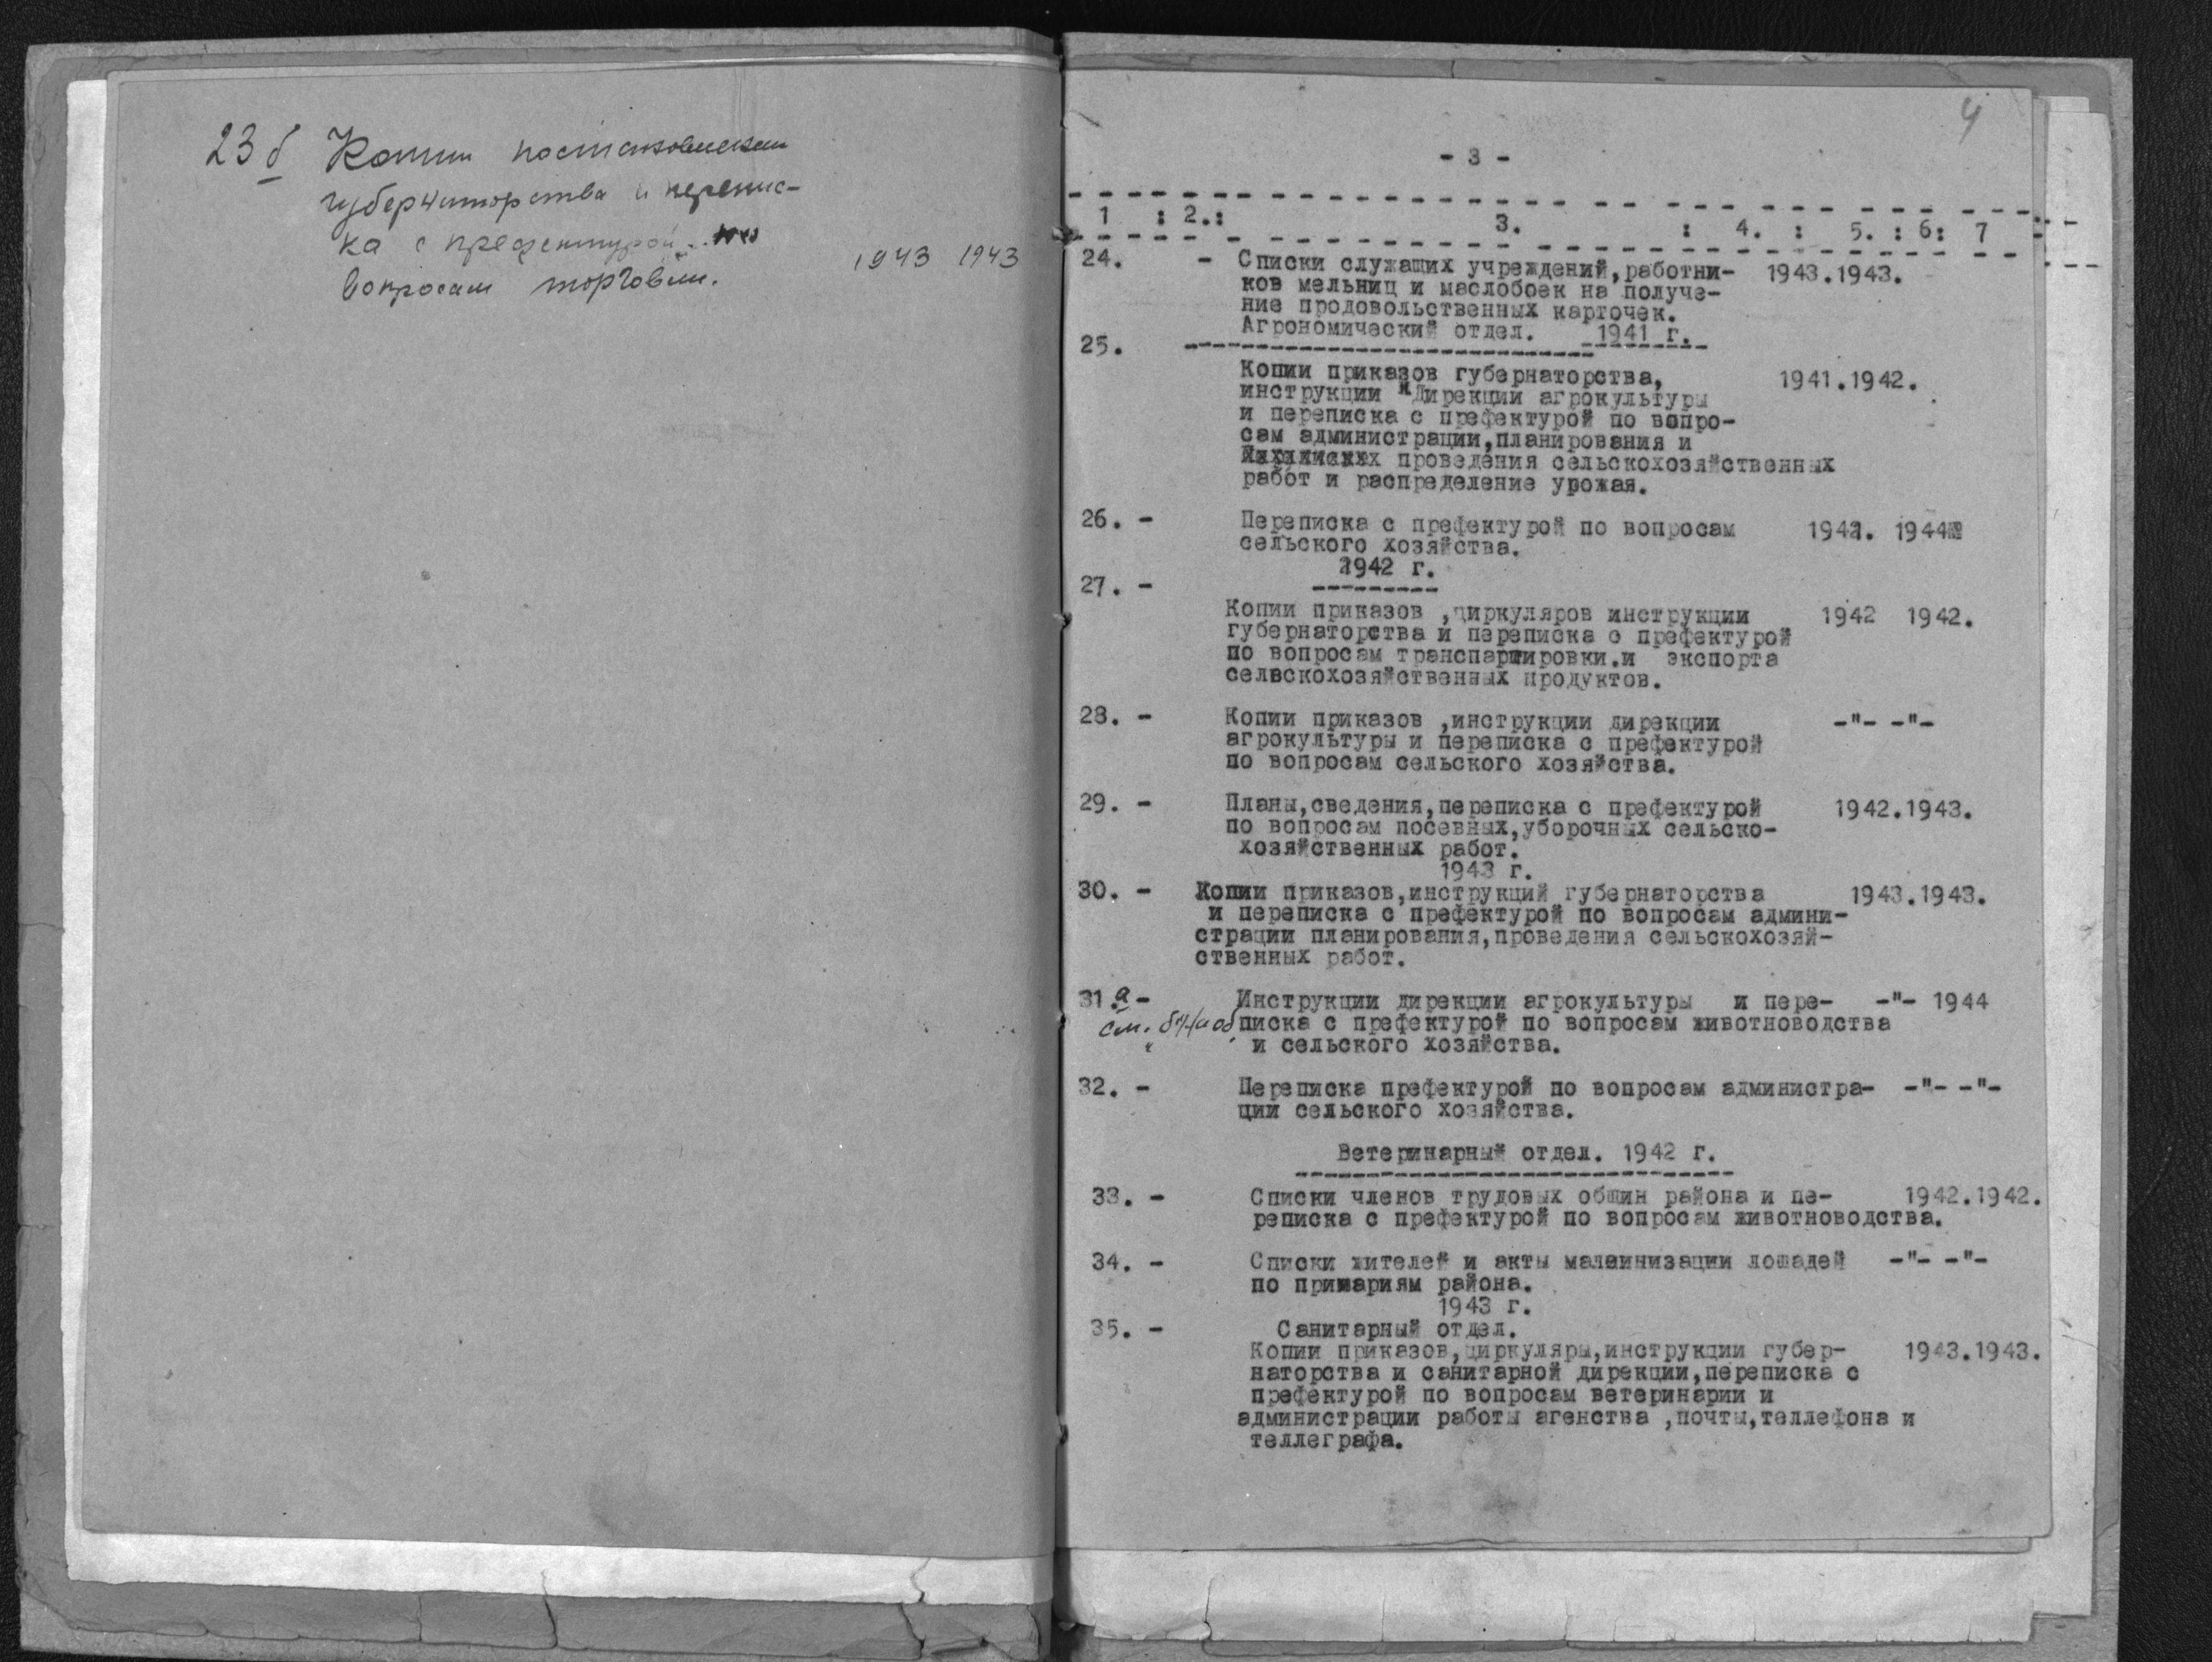 23 б Копии постановлений
губернаторства и перепис-
ка с префектурой по
вопросам торговли. 1943 1943
4
- 3 -
1 : 2.: 3. : 4. : 5. : 6: 7
24. - Списки служащих учреждений,работни- 1943.1943.
ков мельниц и маслобоек на получе-
ние продовольственных карточек.
Агрономический отдел. 1941 г.
25.
Копии приказов губернаторства, 1941.1942.
инструкции и Дирекции агрокультуры
и переписка с префектурой по вопро-
сам администрации,планирования и
проведения сельскохозяйственных
работ и распределение урожая.
26. - Переписка с префектурой по вопросам 1944
сельского хозяйства.
1942 г.
27. -
Копии приказов ,циркуляров инструкции 1942 1942.
губернаторства и переписка с префектурой
по вопросам транспартировки.и экспорта
селвскохозяйственных продуктов.
28. - Копии приказов ,инструкции дирекции -"- -"-
агрокультуры и переписка с префектурой
по вопросам сельского хозяйства.
29. - Планы,сведения,переписка с префектурой 1942.1943.
по вопросам посевных,уборочных сельско-
хозяйственных работ.
1943 г.
30. - Копии приказов,инструкций губернаторства 1943.1943.
и переписка с префектурой по вопросам админи-
страции планирования,проведения сельскохозяй-
ственных работ.
31.а - Инструкции дирекции агрокультуры и пере- -"- 1944
см. "б" на об. писка с префектурой по вопросам животноводства
и сельского хозяйства.
32. - Переписка префектурой по вопросам администра- -"- -"-
ции сельского хозяйства.
Ветеринарный отдел. 1942 г.
33. - Списки членов трудовых общин района и пе- 1942.1942.
реписка с префектурой по вопросам животноводства.
34. - Списки жителей и акты малеинизации лошадей -"- -"-
по примариям района.
1943 г.
35. - Санитарный отдел.
Копии приказов,циркуляры,инструкции губер- 1943.1943.
наторства и санитарной дирекции,переписка с
префектурой по вопросам ветеринарии и
администрации работы агенства ,почты,теллефона и
теллеграфа.